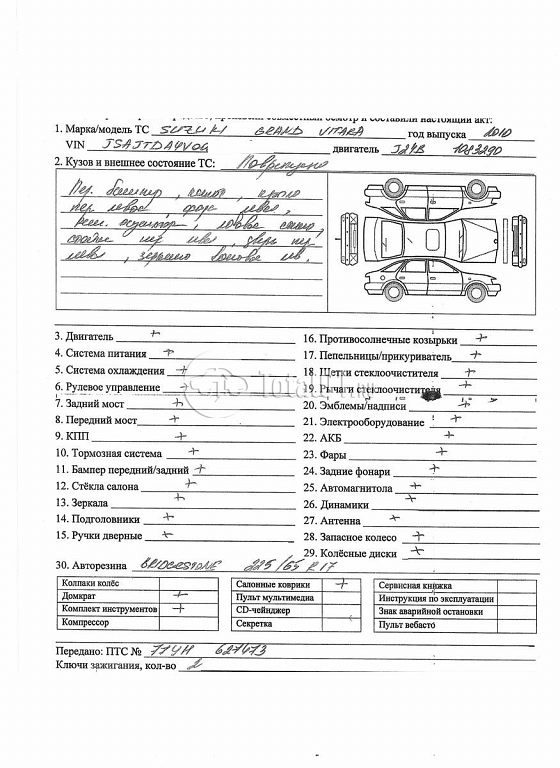 1. Марка/модель ТС SUZUKI GRAND VITARA год выпуска 2010
VIN JSAJTDA4V04 двигатель J24B 1083290
2. Кузов и внешнее состояние ТС:
Пер. бампер, капот, крыло
пер левое, фара левая,
лобовое стекло,
дверь пер
левая, зеркало боковое лв.
3. Двигатель +
4. Система питания +
5. Система охлаждения +
6. Рулевое управление +
7. Задний мост +
8. Передний мост +
9. КПП +
10. Тормозная система +
11. Бампер передний/задний +
12. Стёкла салона +
13. Зеркала +
14. Подголовники +
15. Ручки дверные +
16. Противосолнечные козырьки +
17. Пепельницы/прикуриватель +
18. Щетки стеклоочистителя +
19. Рычаги стеклоочистителя +
20. Эмблемы/надписи +
21. Электрооборудование +
22. АКБ +
23. Фары +
24. Задние фонари +
25. Автомагнитола +
26. Динамики +
27. Антенна +
28. Запасное колесо +
29. Колёсные диски +
30. Авторезина BRIDGESTONE 225/65 R17
Колпаки колёс
Домкрат +
Комплект инструментов +
Компрессор
Салонные коврики +
Пульт мультимедиа
CD-чейнджер
Секретка
Сервисная книжка
Инструкция по эксплуатации
Знак аварийной остановки
Пульт вебасто
Передано: ПТС № 77УН 627473
Ключи зажигания, кол-во 2